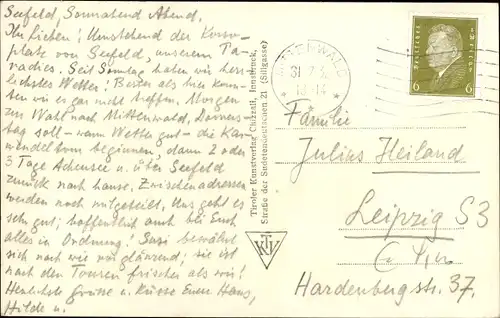 Seefeld, Sonnabend Abend.
Ihr Lieben! Umstehend der Konzert-
platz von Seefeld, unserem Pa-
radies. Seit Sonntag haben wir herr-
lichstes Wetter! Besser als hier konn-
ten wir es gar nicht treffen. Morgen
zur Wahl nach Mittenwald, Donners-
tag soll - wenn Wetter gut - die Kar-
wendeltour beginnen, dann 2 oder
3 Tage Achensee u. über Seefeld
zurück nach Hause. Zwischenadressen
werden noch mitgeteilt. Uns geht es
sehr gut; hoffentlich auch bei Euch
alles in Ordnung! Susi bewährt
sich nach wie vor glänzend; sie ist
nach den Touren frischer als wir!
Herzlichste Grüsse u. Küsse Eure Hans,
Hilde u.
Tiroler Kunstverlag Chizzali, Innsbruck,
Straße der Sudetendeutschen 21 (Sillgasse)
KTI
MITTENWALD
31.7.
Deutsches Reich
6 6
Familie
Julius Heiland
Leipzig S3
Hardenbergstr. 37.